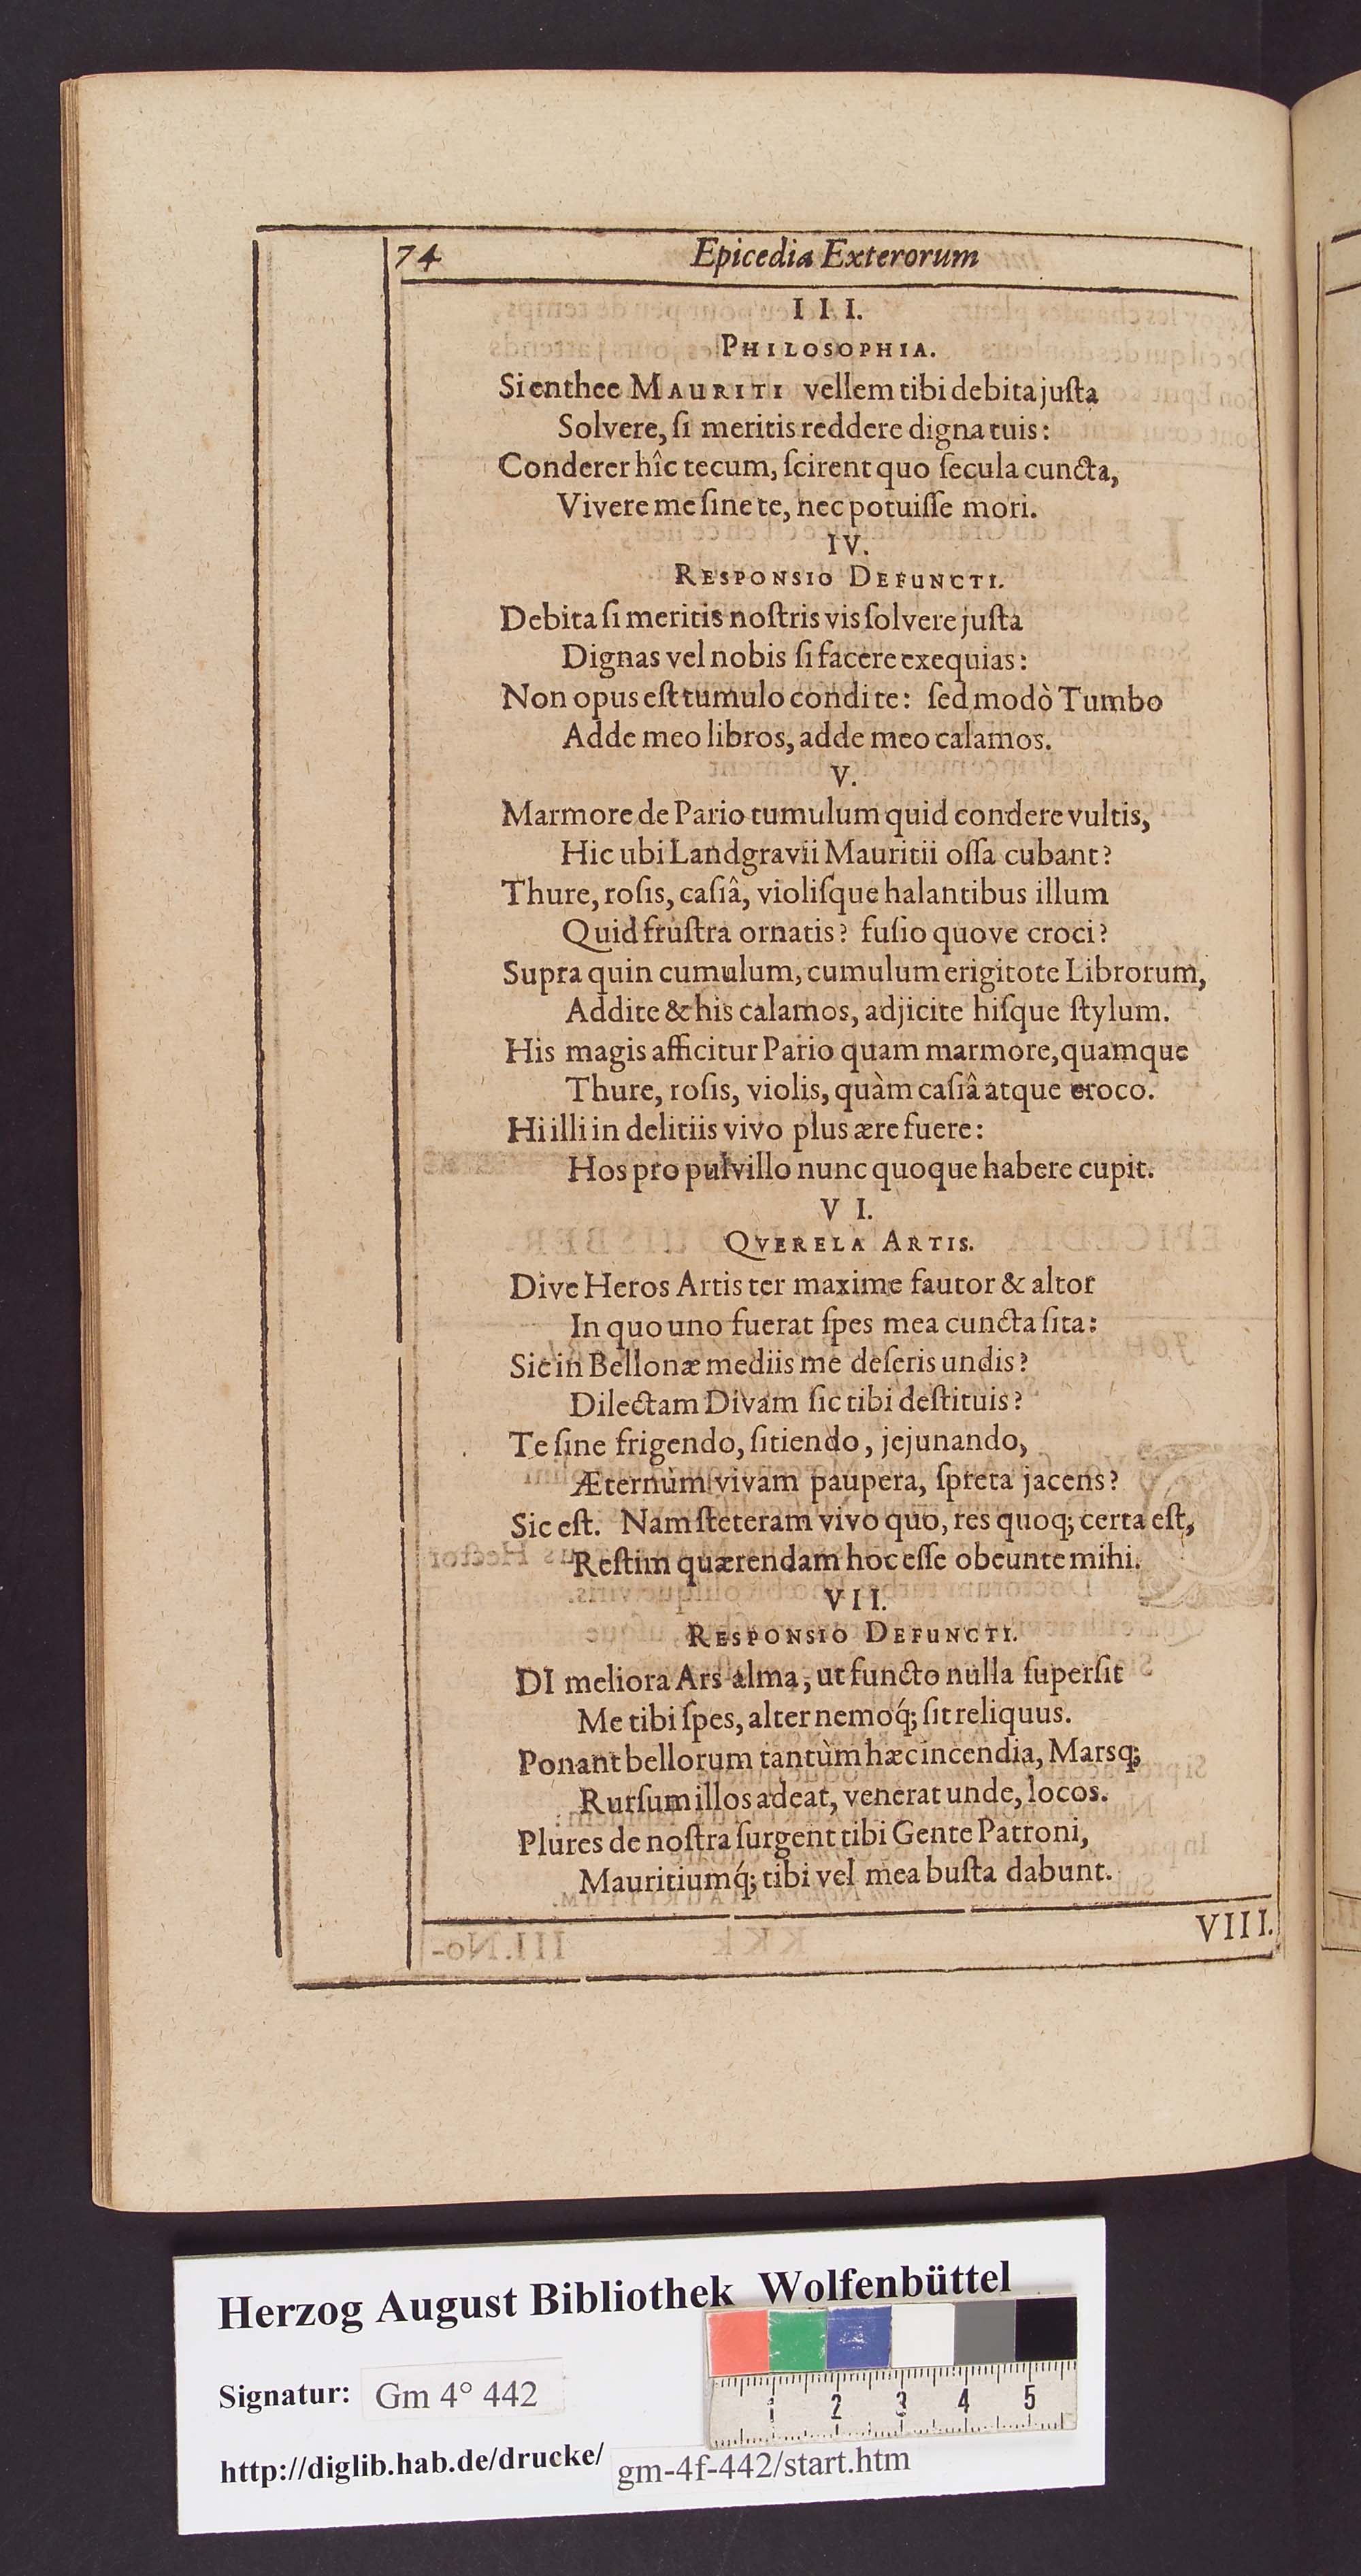 74 Epicedia Exterorum
III.
PHILOSOPHIA.
Si enthee MAURITI vellem tibi debita juſta
Solvere, ſi meritis reddere digna tuis:
Conderer hîc tecum, ſcirent quo ſecula cuncta,
Vivere me ſine te, nec potuiſſe mori.
IV.
RESPONSIO DEFUNCTI.
Debita ſi meritis noſtris vis ſolvere juſta
Dignas vel nobis ſi facere exequias:
Non opus eſt tumulo condi te: ſed modò Tumbo
Adde meo libros, adde meo calamos.
V.
Marmore de Pario tumulum quid condere vultis,
Hic ubi Landgravii Mauritii oſſa cubant?
Thure, roſis, caſiâ, violiſque halantibus illum
Quid fruſtra ornatis? fuſio quove croci?
Supra quin cumulum, cumulum erigitote Librorum,
Addite & his calamos, adjicite hiſque ſtylum.
His magis afficitur Pario quam marmore, quamque
Thure, roſis, violis, quàm caſiâ atque croco.
Hi illi in delitiis vivo plus ære fuere:
Hos pro pulvillo nunc quoque habere cupit.
VI.
QVERELA ARTIS.
Dive Heros Artis ter maxime fautor & altor
In quo uno fuerat ſpes mea cuncta ſita:
Sic in Bellonæ mediis me deſeris undis?
Dilectam Divam ſic tibi deſtituis?
Te ſine frigendo, ſitiendo, jejunando,
Æternùm vivam paupera, ſpreta jacens?
Sic eſt. Nam ſteteram vivo quo, res quoq; certa eſt,
Reſtim quærendam hoc eſſe obeunte mihi.
VII.
RESPONSIO DEFUNCTI.
DI meliora Ars alma, ut functo nulla ſuperſit
Me tibi ſpes, alter nemoq́; ſit reliquus.
Ponant bellorum tantùm hæc incendia, Marsq;
Rurſum illos adeat, venerat unde, locos.
Plures de noſtra ſurgent tibi Gente Patroni,
Mauritiumq́; tibi vel mea buſta dabunt.
VIII.
Herzog August Bibliothek Wolfenbüttel
Signatur: Gm 4° 442
http://diglib.hab.de/drucke/ gm-4f-442/start.htm
1 2 3 4 5